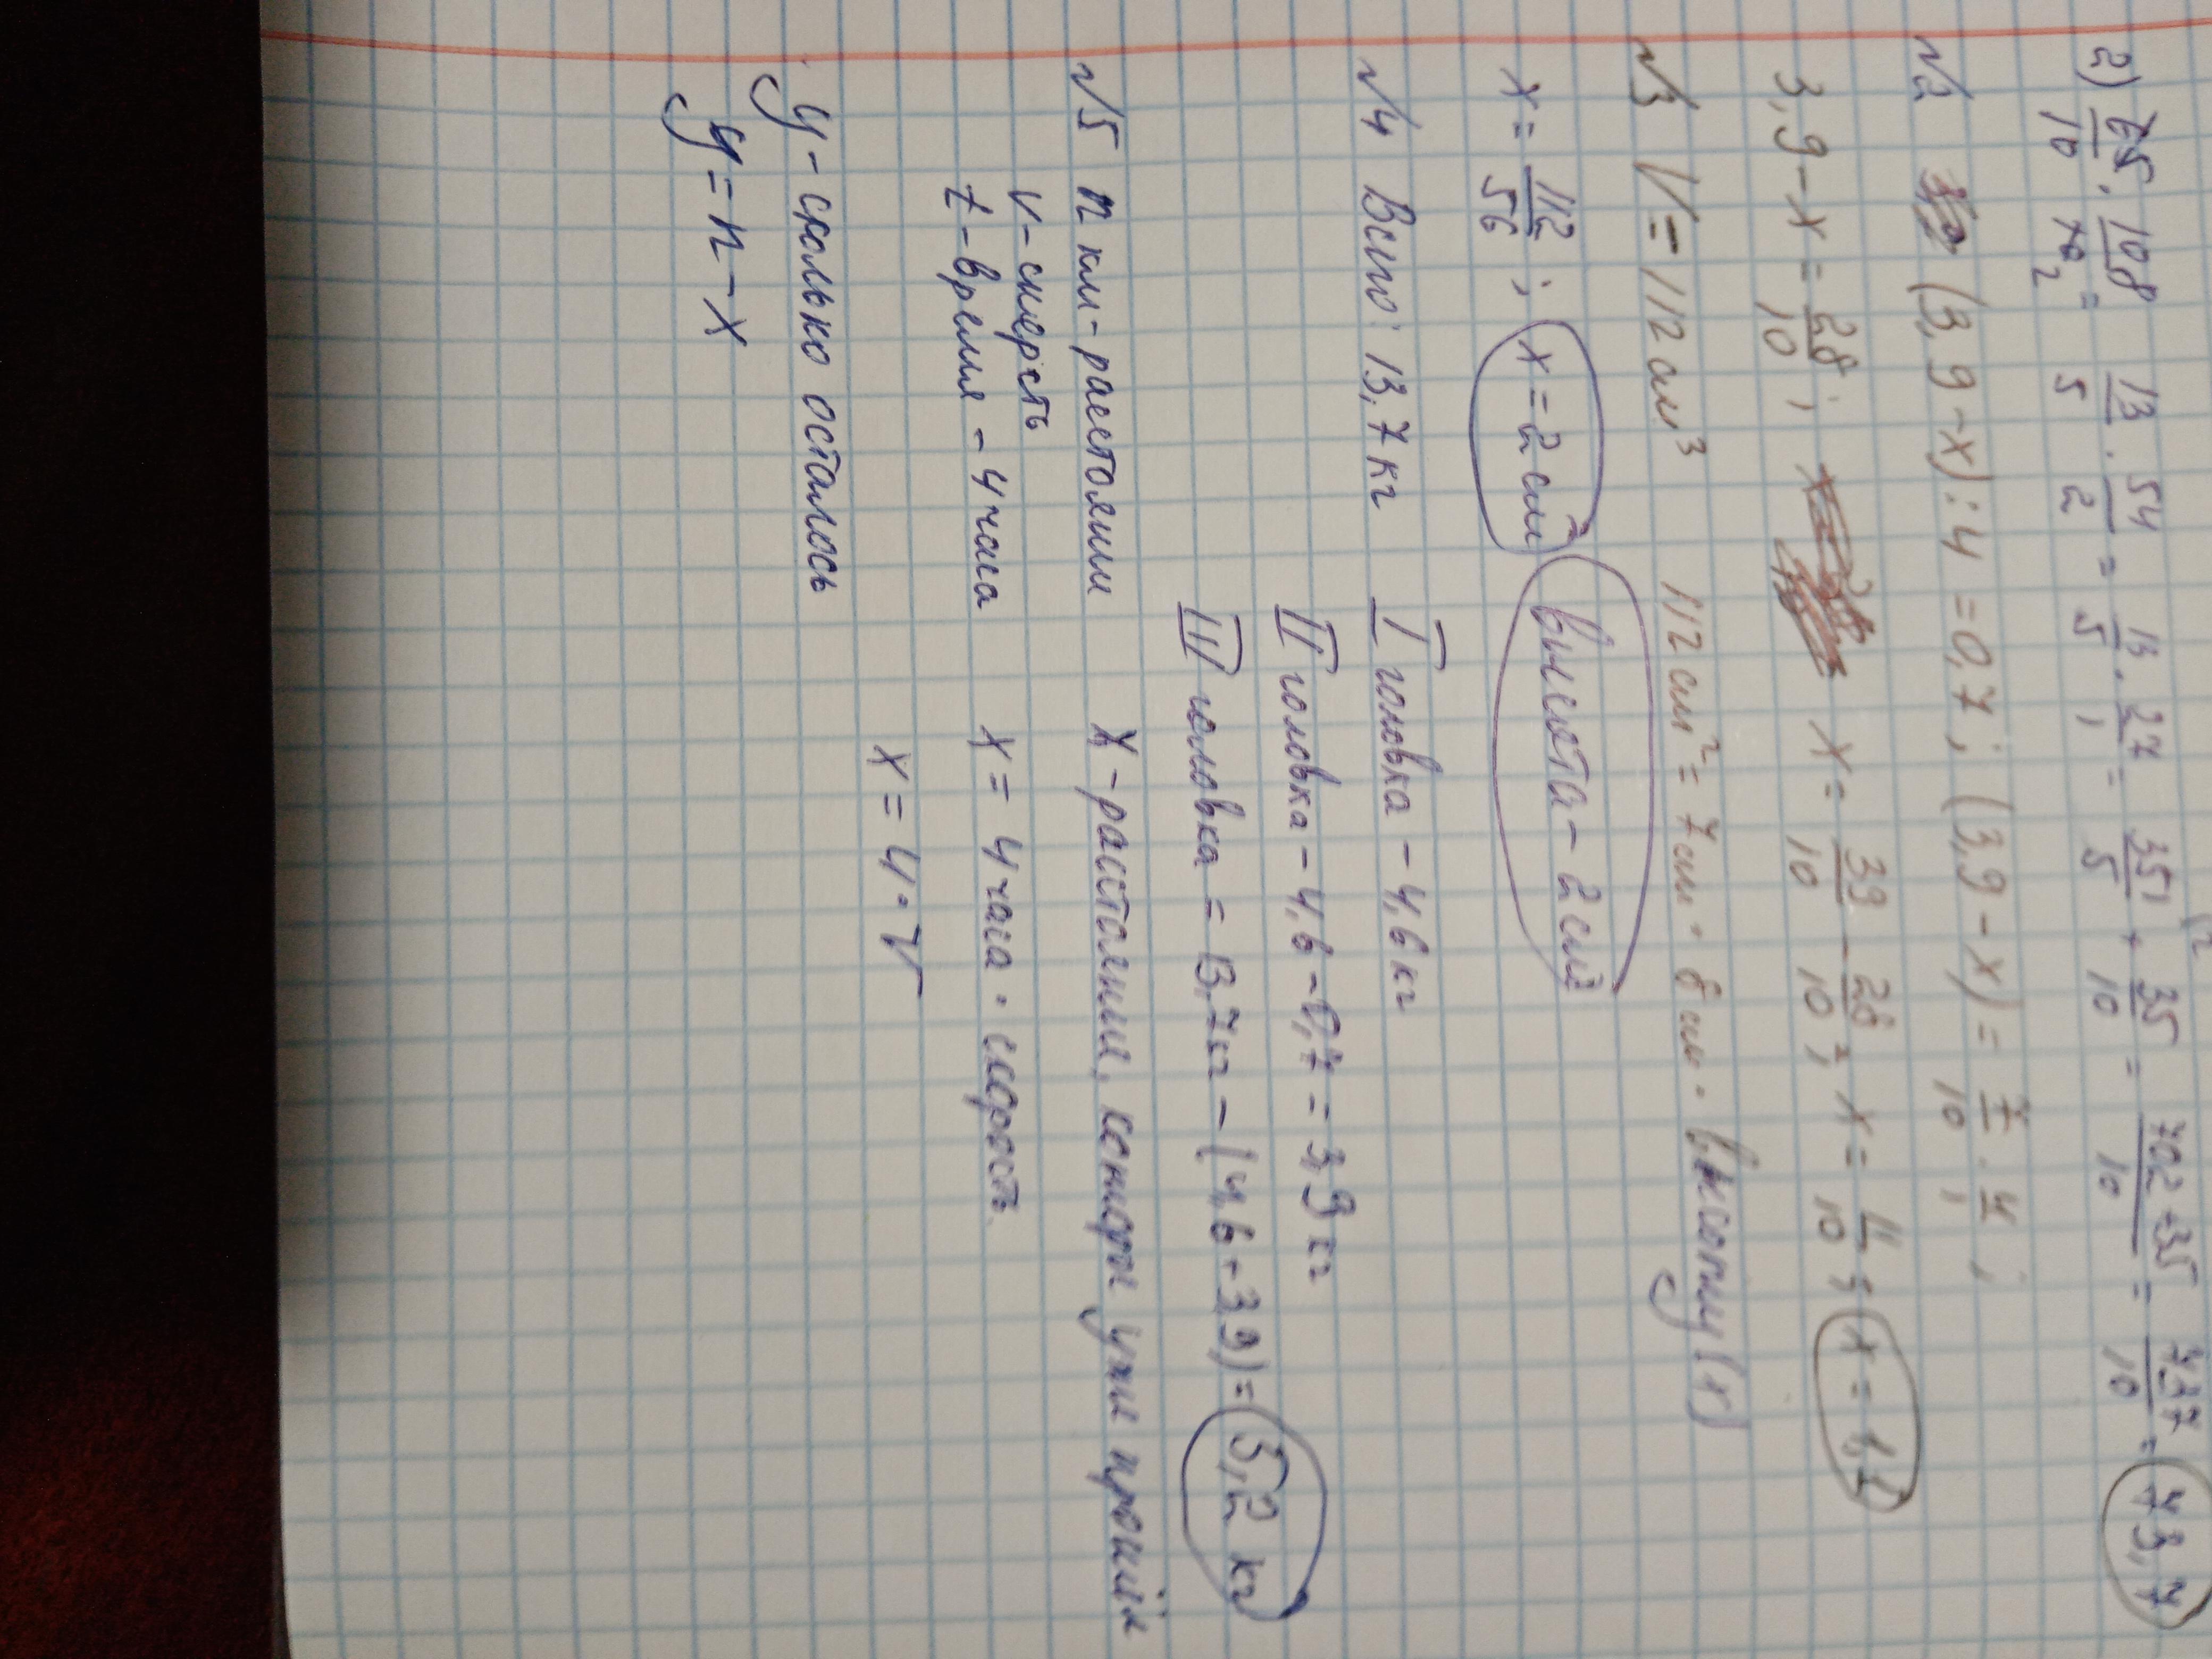 2) 65/10 · 108/10 = 13/5 · 54/2 = 13/5 · 27/1 = 351/5 + 35/10 = 702+35/10 = 737/10 = 73,7
№2 (3,9-x):4 = 0,7; (3,9-x) = 7/10 · 4;
3,9-x = 28/10; x = 39/10 - 28/10; x = 11/10; x = 1,1
№3 V = 112 см³ 112 см² = 7 см · 8 см · высоту (x)
x = 112/56; x = 2 см высота - 2 см
№4 Всего: 13,7 кг I головка - 4,6 кг
II головка - 4,6 - 0,7 = 3,9 кг
III головка = 13,7 кг - (4,6+3,9) = 5,2 кг
№5 n км - расстояние x - расстояние, которы уже прошёл
v - скорсть
t - время - 4 часа x = 4 часа · скорость
x = 4 · V
y - сколько осталось
y = n - x